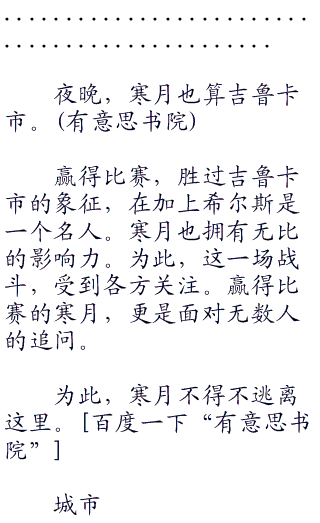 . . . . . . . . . . . . . . . . . . . . . . . . .
. . . . . . . . . . . . . . . . . . . . . .
夜晚，寒月也算吉鲁卡
市。(有意思书院)
赢得比赛，胜过吉鲁卡
市的象征，在加上希尔斯是
一个名人。寒月也拥有无比
的影响力。为此，这一场战
斗，受到各方关注。赢得比
赛的寒月，更是面对无数人
的追问。
为此，寒月不得不逃离
这里。[百度一下“有意思书
院”]
城市